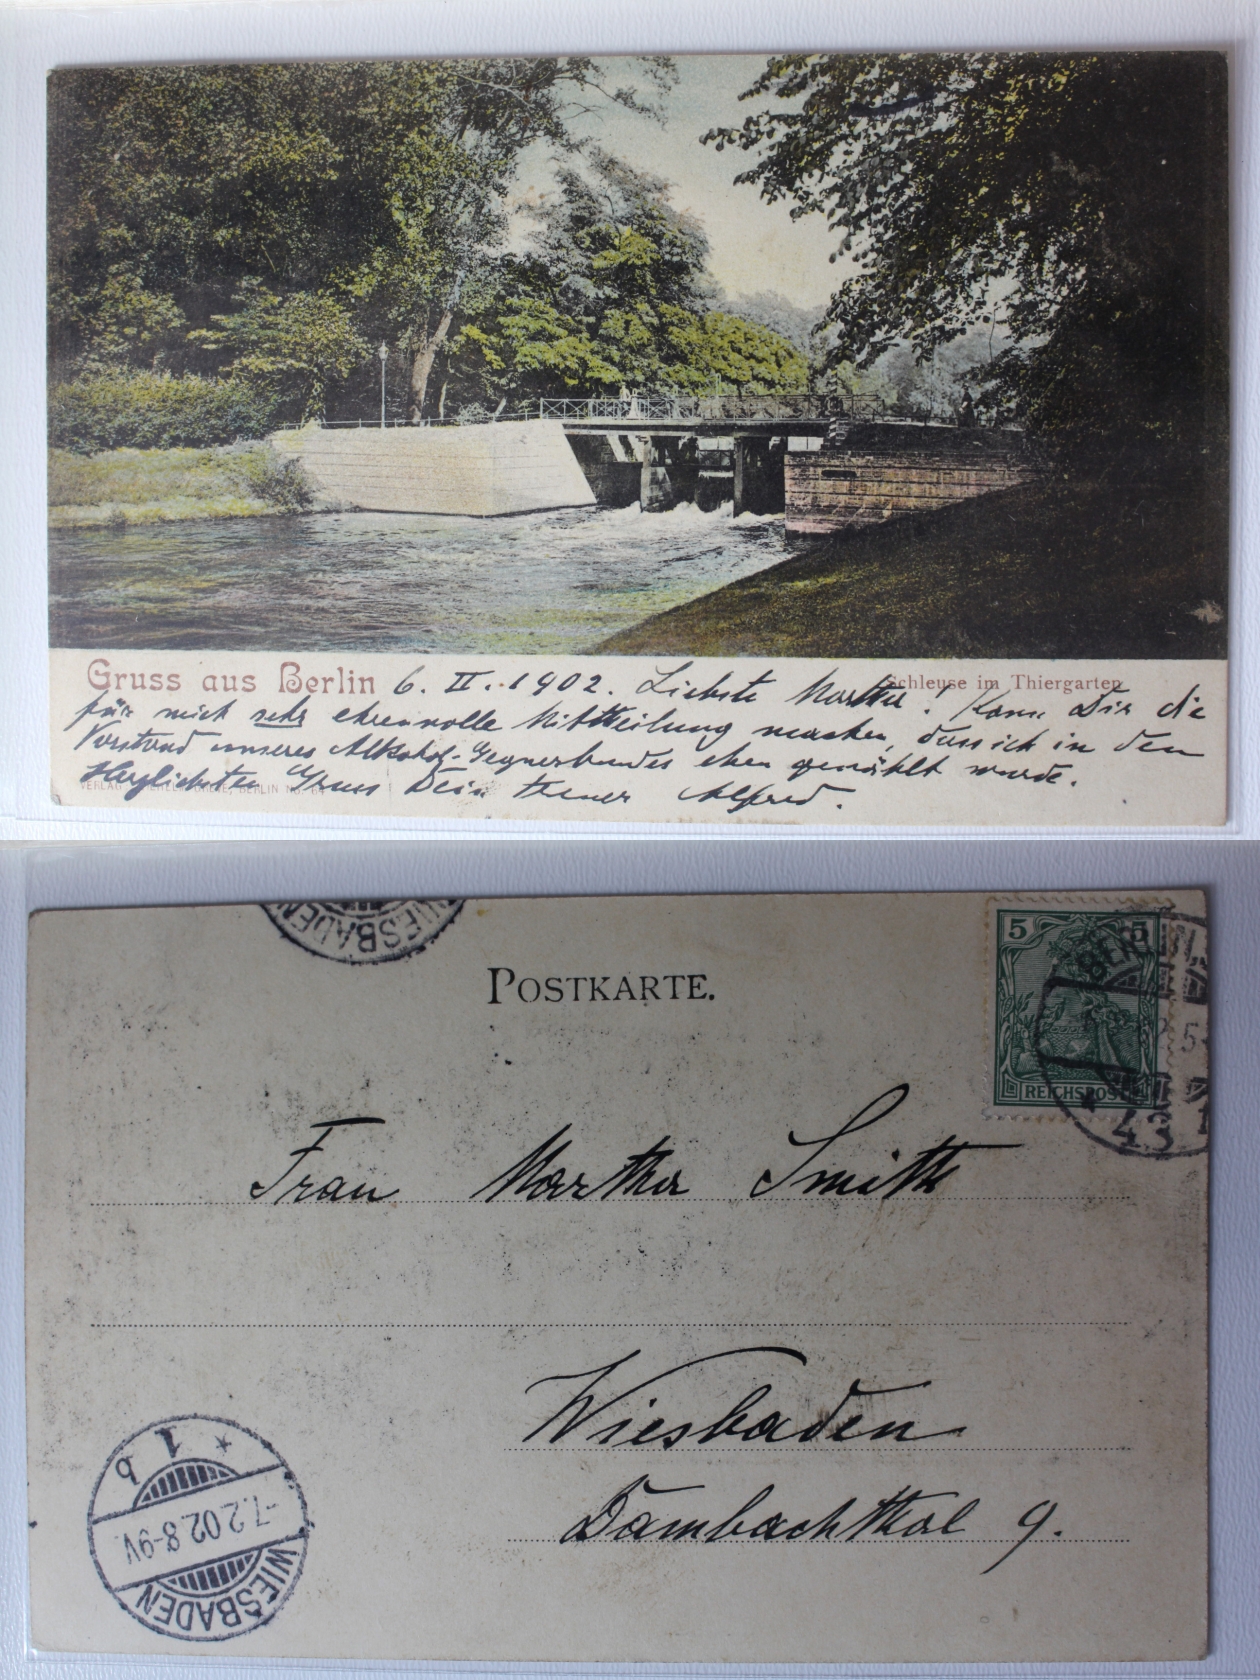 Gruss aus Berlin 6. II. 1902. Liebste Martha! Kann Dir die
Schleuse im Thiergarten
für mich sehr ehrenvolle Mittheilung machen, dass ich in den
Vorstand unseres Alkohol-Gegnerbundes eben gewählt wurde.
Herzlichsten Gruss Dein treuer Alfred.
VERLAG BERLIN No.
WIESBADEN
POSTKARTE.
5 5
REICHSPOST
BERLIN,
43
Frau Martha Smith
Wiesbaden
Dambachthal 9.
WIESBADEN
-7.2.02.8-9V.
* 1 b